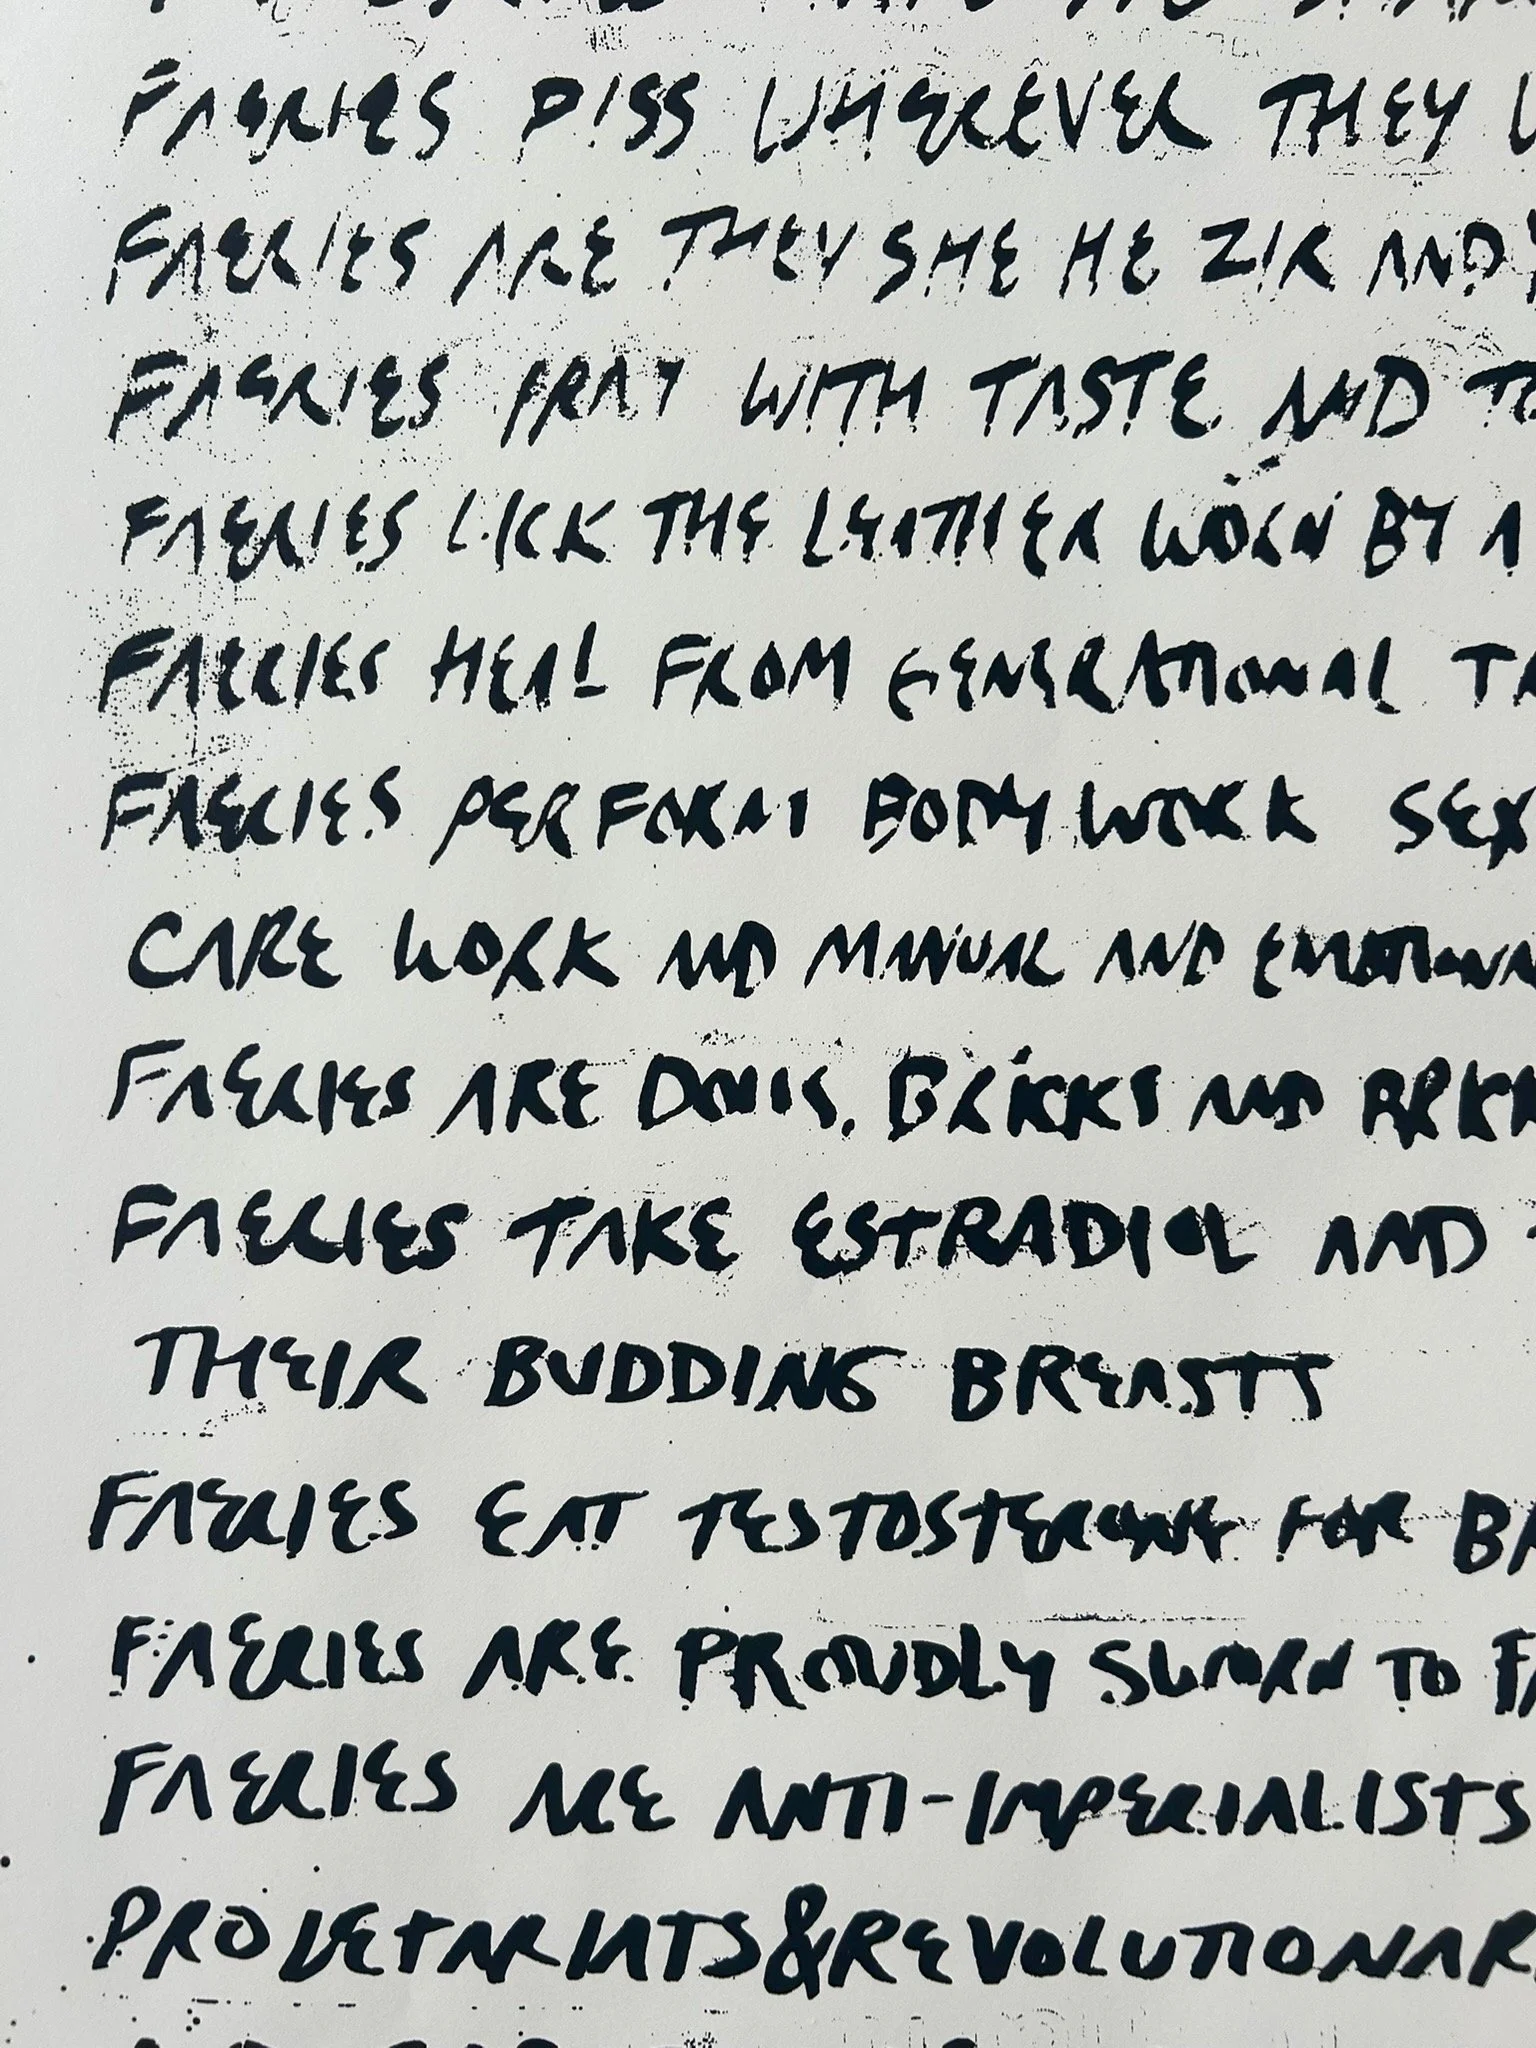 FAERIES PISS WHEREVER THEY
FAERIES ARE THEY SHE HE ZIR AND
FAERIES PRAY WITH TASTE AND
FAERIES LICK THE LEATHER WORN BY A
FAERIES HEAL FROM GENERATIONAL
FAERIES PERFORM BODY WORK SEX
CARE WORK AND MANUAL AND EMOTIONA
FAERIES ARE DOLLS, BRICKS AND
FAERIES TAKE ESTRADIOL AND
THEIR BUDDING BREASTS
FAERIES EAT TESTOSTERONE FOR
FAERIES ARE PROUDLY SWORN TO
FAERIES ARE ANTI-IMPERIALISTS
PROLETARIATS & REVOLUTIONAR